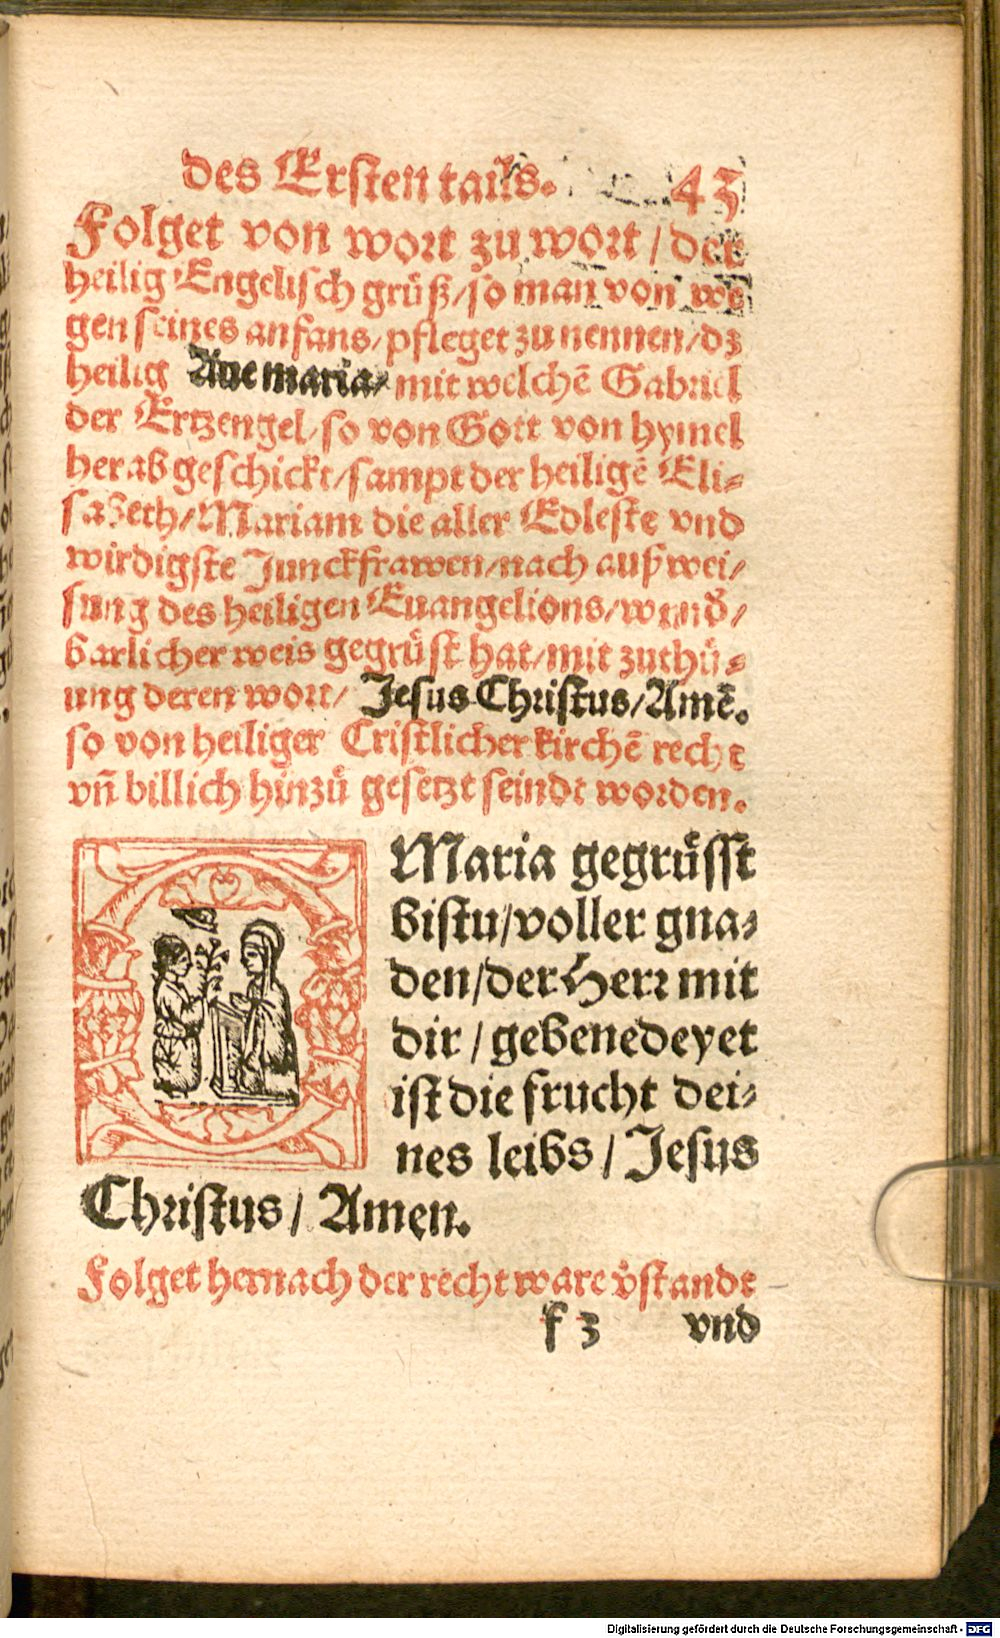 des Ersten tails. 43
Folget von wort zu wort / der
heilig Engelisch grüß / so man von we
gen seines anfans / pfleget zu nennen / dz
heilig Aue maria / mit welchē Gabriel
der Ertzengel / so von Gott von hymel
herab geschickt / sampt der heiligē Eli⸗
sabeth / Mariam die aller Edleste vnd
wirdigste Junckfrawen / nach außwei /
sung des heiligen Euangelions / wund /
barlicher weis gegrüst hat / mit zuthü⸗
ung deren wort / Jesus Christus / Amē.
so von heiliger Cristlicher kirchē recht
vñ billich hinzů gesetzt seindt worden.
Maria gegrüsst
bistu / voller gna⸗
den / der Herr mit
dir / gebenedeyet
ist die frucht dei⸗
nes leibs / Jesus
Christus / Amen.
Folget hernach der recht ware v̓standt
f 3 vnd
Digitalisierung gefördert durch die Deutsche Forschungsgemeinschaft - DFG